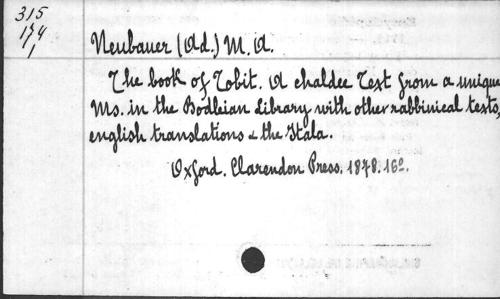 315
174
1
Neubauer (Ad.) M. A.
The book of Tobit. A chaldee Text from a unique
Ms. in the Bodleian Library with other rabbinical texts,
english translations & the Itala.
Oxford. Clarendon Press. 1878. 16º.